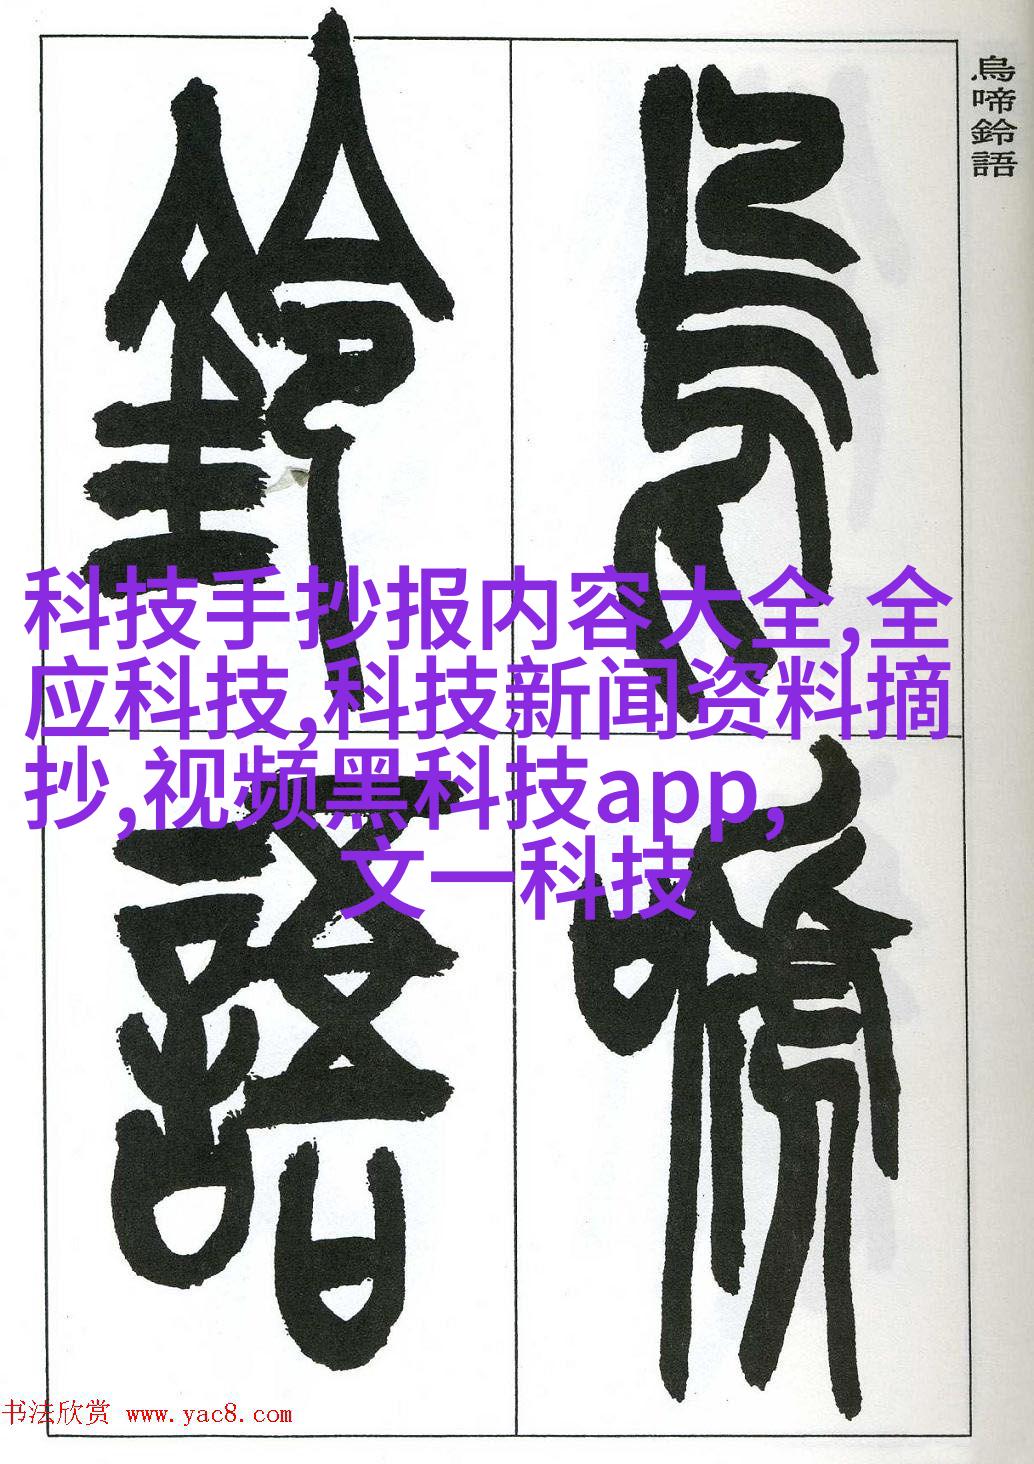 烏啼鈴語
烏啼
鈴語
科技手抄报内容大全,全
应科技,科技新闻资料摘
抄,视频黑科技app,
文一科技
书法欣赏 www.yac8.com